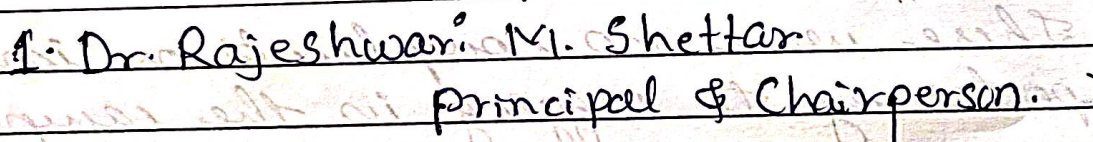 1. Dr. Rajeshwari M. Shettar
principal & Chairperson.